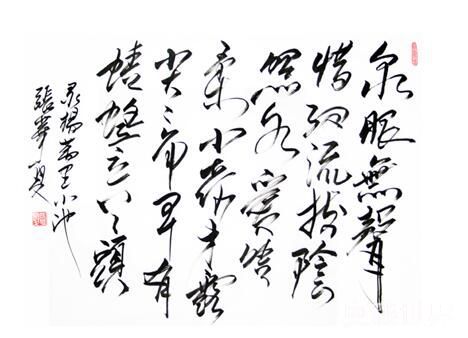 泉眼無聲
惜細流樹陰
照水愛晴
柔小荷才露
尖々角早有
蜻蜓立上頭
录楊萬里小池
張